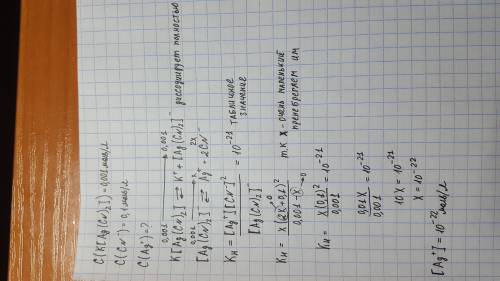 C(K[Ag(CN)₂]) = 0,001 моль/л
C(CN⁻) = 0,1 моль/л
C(Ag⁺) = ?
0,001 0,001
K[Ag(CN)₂] ⇄ K⁺ + [Ag(CN)₂]⁻ диссоциирует полностью
0,001 x 2x
[Ag(CN)₂]⁻ ⇄ Ag⁺ + 2CN⁻
Kн = [Ag⁺][CN⁻]² / [Ag(CN)₂]⁻ = 10⁻²¹ табличное значение
Kн = x(2x+0,1)² / 0,001-x т.к x - очень маленький пренебрегаем им
Kн = x(0,1)² / 0,001 = 10⁻²¹
0,01x / 0,001 = 10⁻²¹
10x = 10⁻²¹
x = 10⁻²²
[Ag⁺] = 10⁻²² моль/л